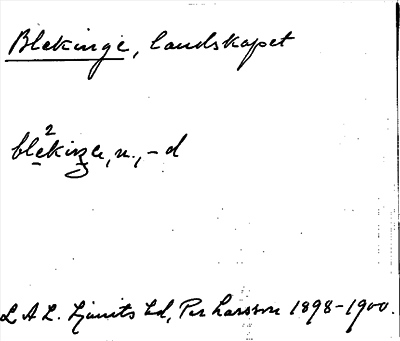 Blekinge, landskapet
ble²kinʒe, n., -d
L A L. Ljunits hd, Per Larsson 1898-1900.